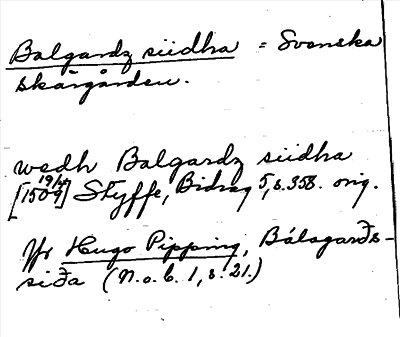 Balgardz siidha = Svenska
skärgården.
wedh Balgardz siidha
[19/4 1509] Styffe, Bidrag 5, s. 358. orig.
Jfr Hugo Pipping, Bálagarðs-
siða (N.o.B. 1, s. 21.)